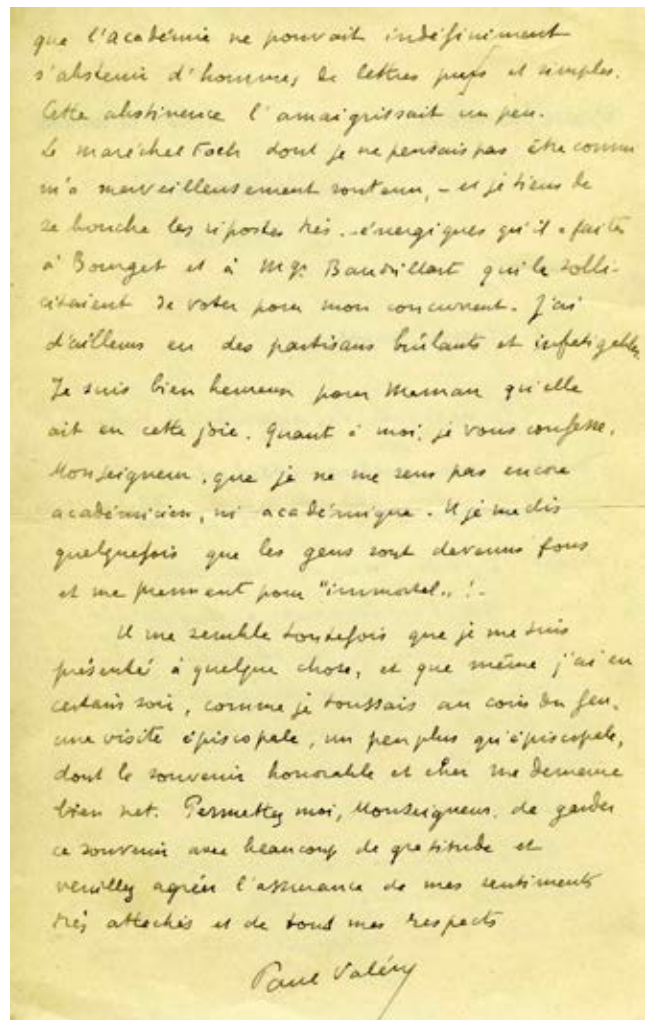 que l'académie ne pouvait indéfiniment
s'abstenir d'hommes de lettres purs et simples.
Cette abstinence l'amaigrissait un peu.
Le maréchal Foch dont je ne pensais pas être connu
m'a merveilleusement soutenu, – et je tiens de
sa bouche les ripostes très énergiques qu'il a faites
à Bourget et à Mgr Baudrillart qui le solli-
citaient de voter pour mon concurrent. J'ai
d'ailleurs eu des partisans brûlants et infatigables
Je suis bien heureux pour Maman qu'elle
ait eu cette joie. Quant à moi, je vous confesse,
Monseigneur, que je ne me sens pas encore
académicien, ni académique. Et je me dis
quelquefois que les gens sont devenus fous
et me prennent pour "immortel" !.
Il me semble toutefois que je me suis
présenté à quelque chose, et que même j'ai eu
certain soir, comme je toussais au coin du feu,
une visite épiscopale, un peu plus qu'épiscopale,
dont le souvenir honorable et cher me demeure
bien net. Permettez moi, Monseigneur, de garder
ce souvenir avec beaucoup de gratitude et
veuillez agréer l'assurance de mes sentiments
très attachés et de tous mes respects
Paul Valéry